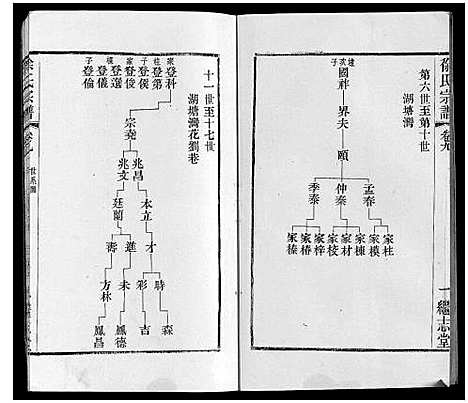 徐氏宗譜
卷九
一
繼志堂
第六世至第十世
湖塘灣
建茨子
國祥
界夫
頤
孟春
仲秦
季泰
家柱
家模
家棟
家材
家梓
家椿
家榛
十一世至十七世
湖塘灣花劉巷
登科
登第
登俊
登選
登儀
登倫
宗堯
兆昌
兆文
本立
廷蘭
才
進
壽
時
彩
未
方林
森
吉
鳳德
鳳昌
徐氏宗譜
卷九
世系圖